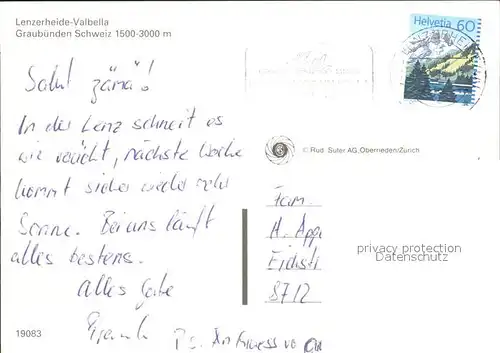 Lenzerheide-Valbella
Graubünden Schweiz 1500-3000 m
Helvetia 60
Salut zämä!
In der Lenz schneit es
wie verückt, nächste Woche
kommt sicher wieder mehr
Sonne. Bei uns läuft
alles bestens.
Alles Gute
© Rud. Suter AG, Oberrieden/Zürich
Fam.
H. Appe
Eichstr
8712
privacy protection
Datenschutz
19083
P.S.